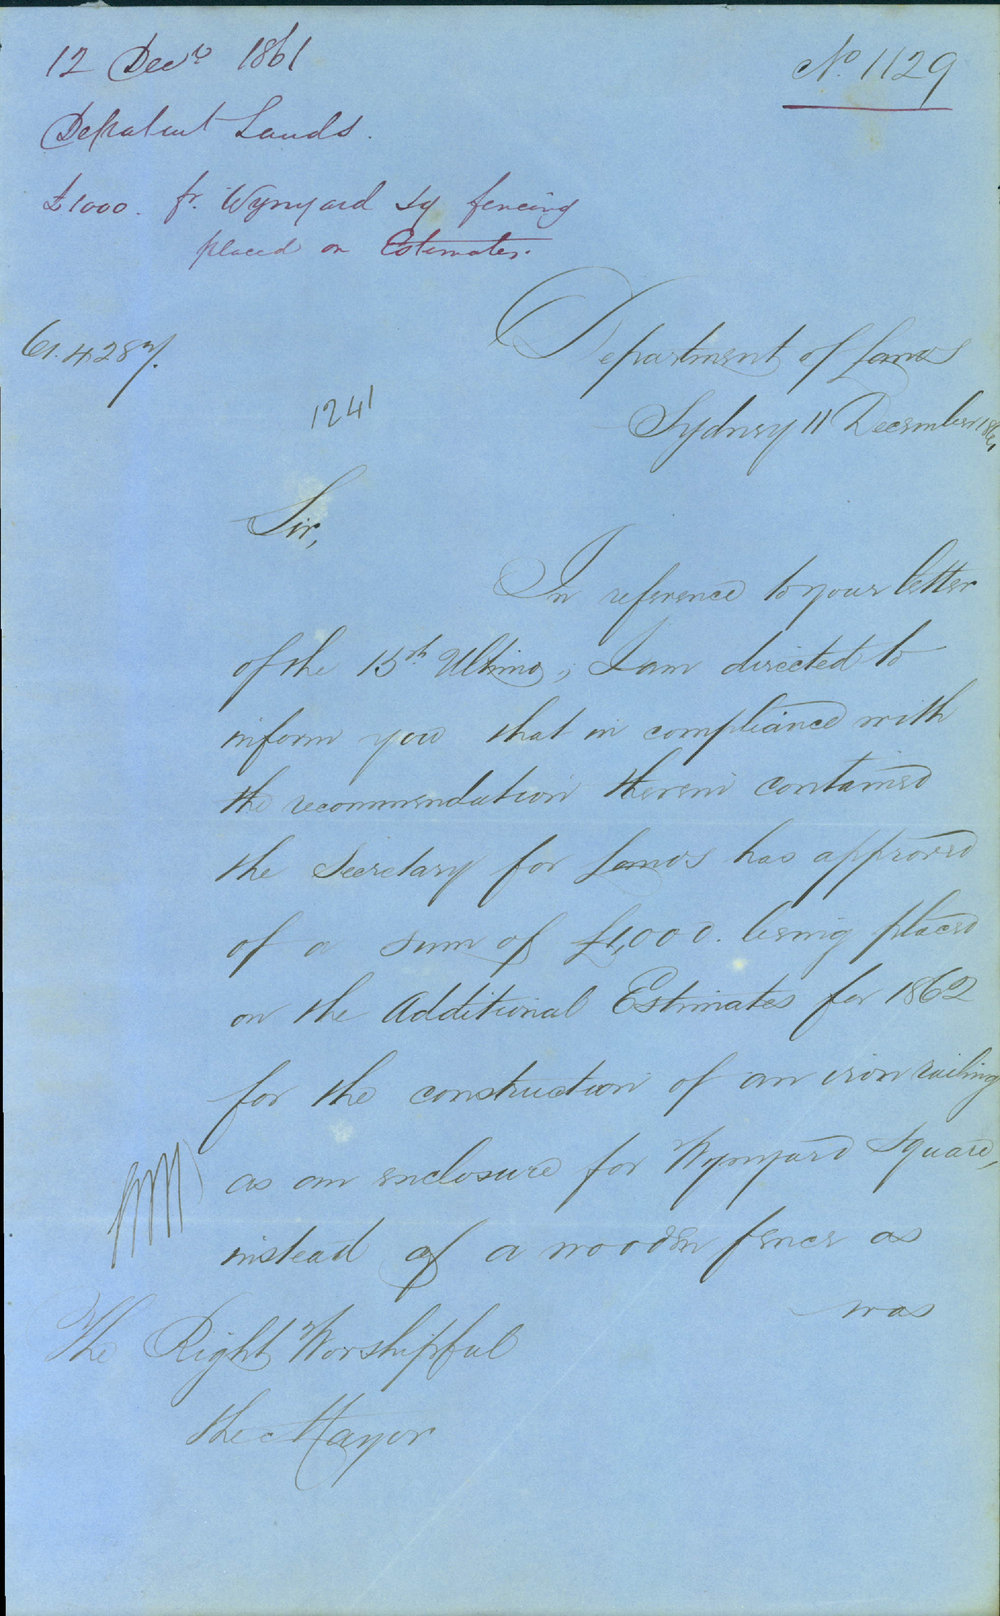 12 Decr 1861
No. 1129
Depatmt Lands.
£1000. fr. Wynyard Sq fencing
placed on Estimates.
61.4287.
Department of Lands
Sydney 11 December 1861
1241
Sir,
In reference to your letter
of the 15th Ultimo, I am directed to
inform you that in compliance with
the recommendation therein contained
the Secretary for Lands has approved
of a sum of £1,000. being placed
on the Additional Estimates for 1862
for the construction of an iron railing
as an enclosure for Wynyard Square,
instead of a wooden fence as
was
The Right Worshipful
the Mayor